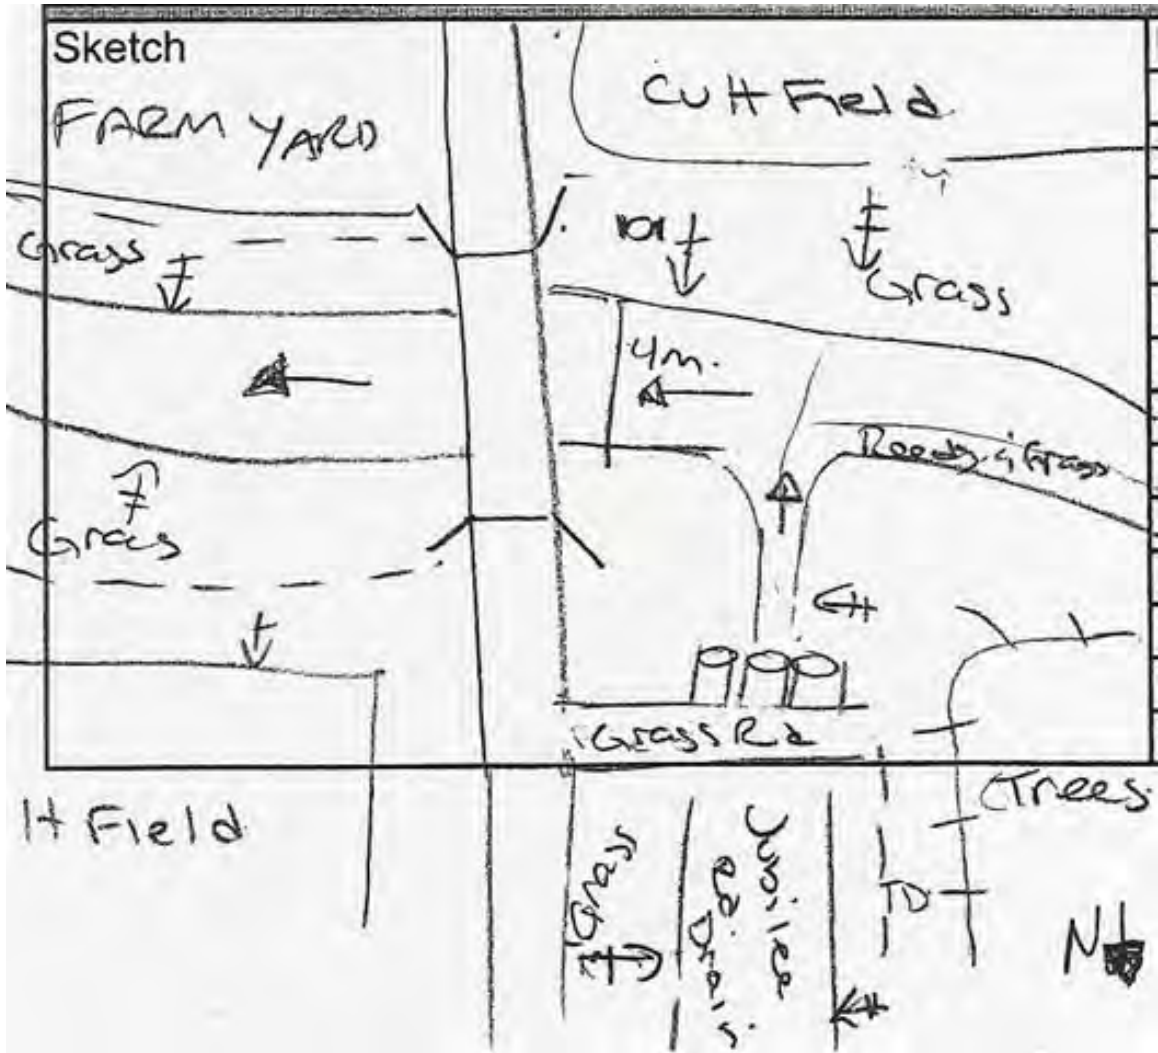 Sketch
FARM YARD
Cut Field
Grass
Grass
4m.
Reeds & Grass
Gras
Grass Rd
H Field
Trees
Grass
Jubilee
Drain.
TD
N